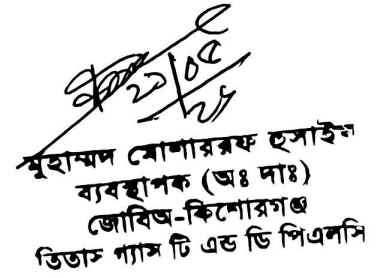 ২০/০৫
২৫
মুহাম্মদ মোশাররফ হুসাইন
ব্যবস্থাপক (অঃ দাঃ)
জোবিঅ-কিশোরগঞ্জ
তিতাস গ্যাস টি এন্ড ডি পিএলসি